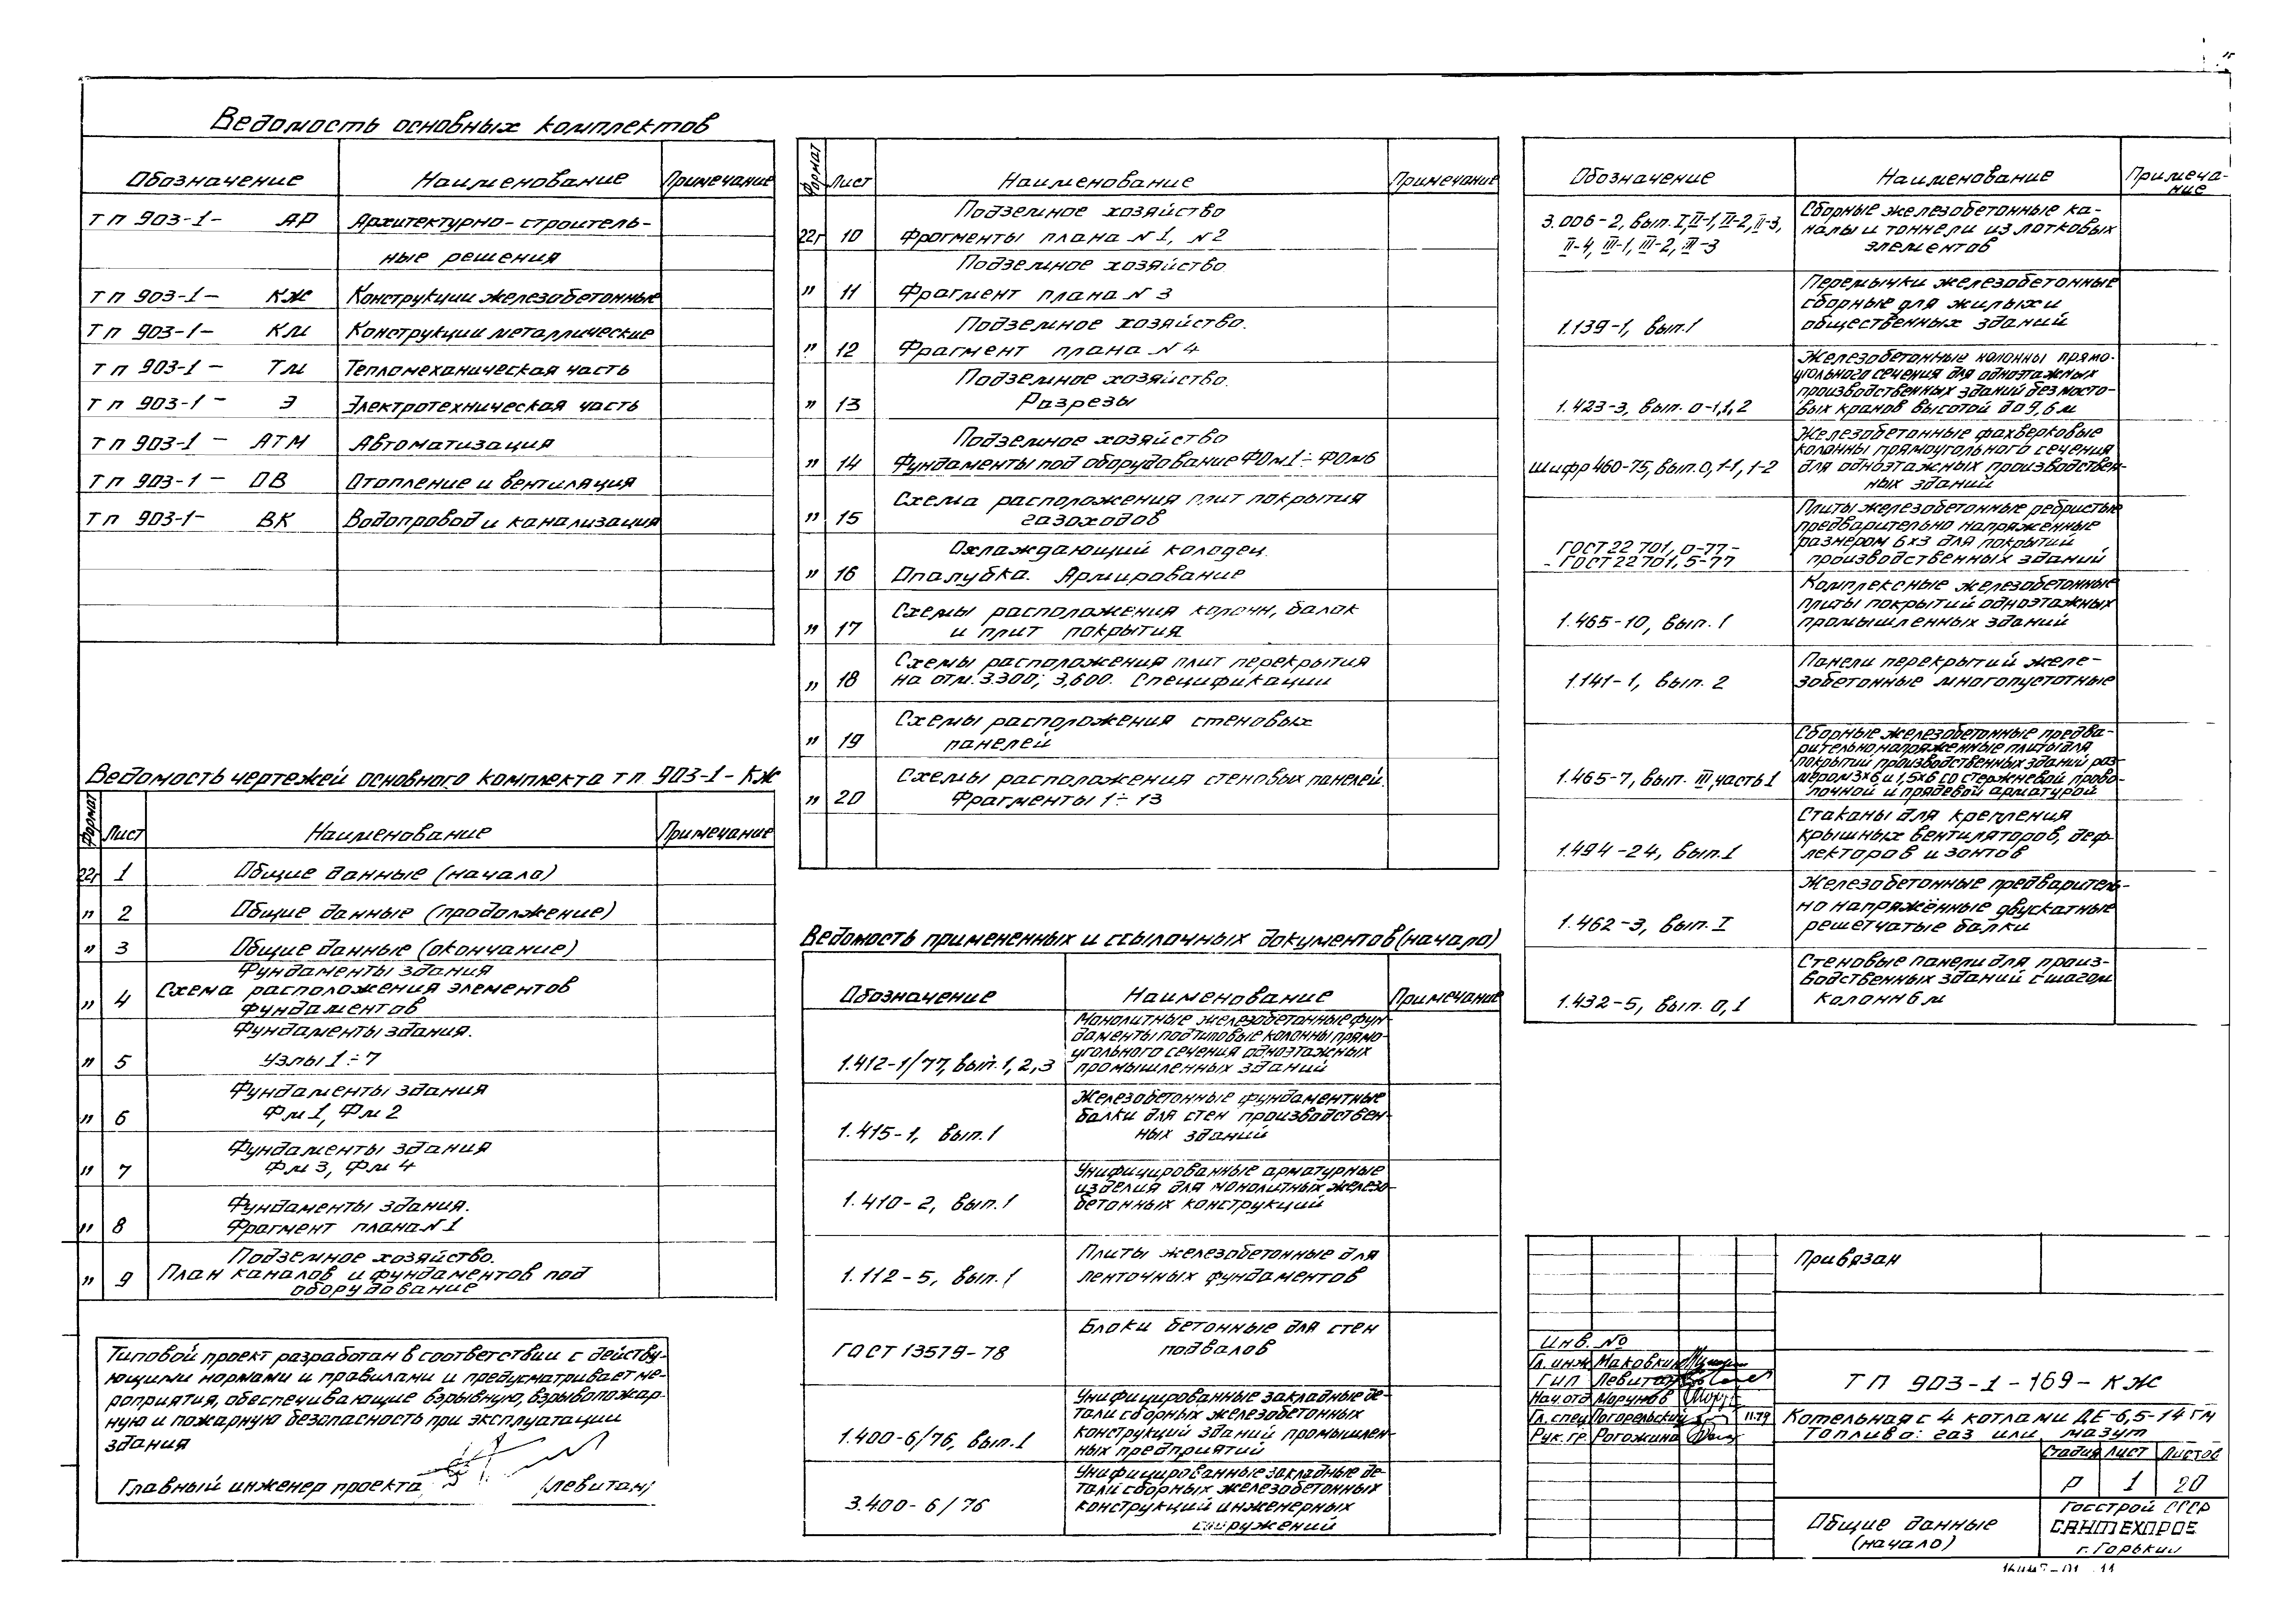 Ведомость основных комплектов
Обозначение Наименование Примечание
ТП 903-1- АР Архитектурно-строитель-
ные решения
ТП 903-1- КЖ Конструкции железобетонные
ТП 903-1- КМ Конструкции металлические
ТП 903-1- ТМ Тепломеханическая часть
ТП 903-1- Э Электротехническая часть
ТП 903-1- АТМ Автоматизация
ТП 903-1- ОВ Отопление и вентиляция
ТП 903-1- ВК Водопровод и канализация
Ведомость чертежей основного комплекта ТП 903-1-КЖ
Формат Лист Наименование Примечание
22г 1 Общие данные (начало)
" 2 Общие данные (продолжение)
" 3 Общие данные (окончание)
Фундаменты здания
" 4 Схема расположения элементов
фундаментов
Фундаменты здания.
" 5 Узлы 1÷7
Фундаменты здания
" 6 Фм1, Фм2
Фундаменты здания
" 7 Фм3, Фм4
Фундаменты здания.
" 8 Фрагмент плана N1
Подземное хозяйство.
" 9 План каналов и фундаментов под
оборудование
Типовой проект разработан в соответствии с действу-
ющими нормами и правилами и предусматривает ме-
роприятия, обеспечивающие взрывную, взрывопожар-
ную и пожарную безопасность при эксплуатации
здания
Главный инженер проекта /Левитан/
Формат Лист Наименование Примечание
Подземное хозяйство
22г 10 Фрагменты плана N1, N2
Подземное хозяйство
" 11 Фрагмент плана N3
Подземное хозяйство.
" 12 Фрагмент плана N4
Подземное хозяйство.
" 13 Разрезы
Подземное хозяйство
" 14 Фундаменты под оборудование ФОм1÷ФОм6
Схема расположения плит покрытия
" 15 газоходов
Охлаждающий колодец.
" 16 Опалубка. Армирование
Схемы расположения колонн, балок
" 17 и плит покрытия
Схемы расположения плит перекрытия
" 18 на отм. 3.300; 3,600. Спецификации
Схемы расположения стеновых
" 19 панелей
Схемы расположения стеновых панелей.
" 20 Фрагменты 1÷13
Ведомость примененных и ссылочных документов (начало)
Обозначение Наименование Примечание
Монолитные железобетонные фун-
даменты под типовые колонны прямо-
угольного сечения одноэтажных
1.412-1/77, вып. 1, 2, 3 промышленных зданий
Железобетонные фундаментные
балки для стен производствен-
1.415-1, вып. 1 ных зданий
Унифицированные арматурные
изделия для монолитных железо-
1.410-2, вып. 1 бетонных конструкций
Плиты железобетонные для
1.112-5, вып. 1 ленточных фундаментов
Блоки бетонные для стен
ГОСТ 13579-78 подвалов
Унифицированные закладные де-
тали сборных железобетонных
конструкций зданий промышлен-
1.400-6/76, вып. 1 ных предприятий
Унифицированные закладные де-
тали сборных железобетонных
3.400-6/76 конструкций инженерных
сооружений
Обозначение Наименование Примеча-
ние
Сборные железобетонные ка-
3.006-2, вып. I, II-1, II-2, II-3, налы и тоннели из лотковых
II-4, III-1, III-2, III-3 элементов
Перемычки железобетонные
сборные для жилых и
1.139-1, вып. 1 общественных зданий
Железобетонные колонны прямо-
угольного сечения для одноэтажных
производственных зданий без мосто-
1.423-3, вып. 0-1, 1, 2 вых кранов высотой до 9,6 м
Железобетонные фахверковые
колонны прямоугольного сечения
Шифр 460-75, вып. 0, 1-1, 1-2 для одноэтажных производствен-
ных зданий
Плиты железобетонные ребристые
предварительно напряженные
ГОСТ 22701, 0-77- размером 6х3 для покрытий
- ГОСТ 22701, 5-77 производственных зданий
Комплексные железобетонные
плиты покрытий одноэтажных
1.465-10, вып. 1 промышленных зданий
Панели перекрытий желе-
1.141-1, вып. 2 зобетонные многопустотные
Сборные железобетонные предва-
рительно напряженные плиты для
покрытий производственных зданий раз-
1.465-7, вып. III, часть 1 мером 3х6 и 1,5х6 со стержневой прово-
лочной и прядевой арматурой
Стаканы для крепления
крышных вентиляторов, деф-
1.494-24, вып. 1 лекторов и зонтов
Железобетонные предваритель-
но напряжённые двускатные
1.462-3, вып. I решетчатые балки
Стеновые панели для произ-
водственных зданий с шагом
1.432-5, вып. 0, 1 колонн 6 м
Привязан
Инв. №
Гл. инж Маковкин
ГИП Левитан
Нач. отд Морунов
Гл. спец Погорельский 11.79
Рук. гр. Рогожина
ТП 903-1-169-КЖ
Котельная с 4 котлами ДЕ-6,5-14 ГМ
Топливо: газ или мазут
Стадия Лист Листов
Р 1 20
Общие данные
(начало)
Госстрой СССР
САНТЕХПРОЕ
г. Горький